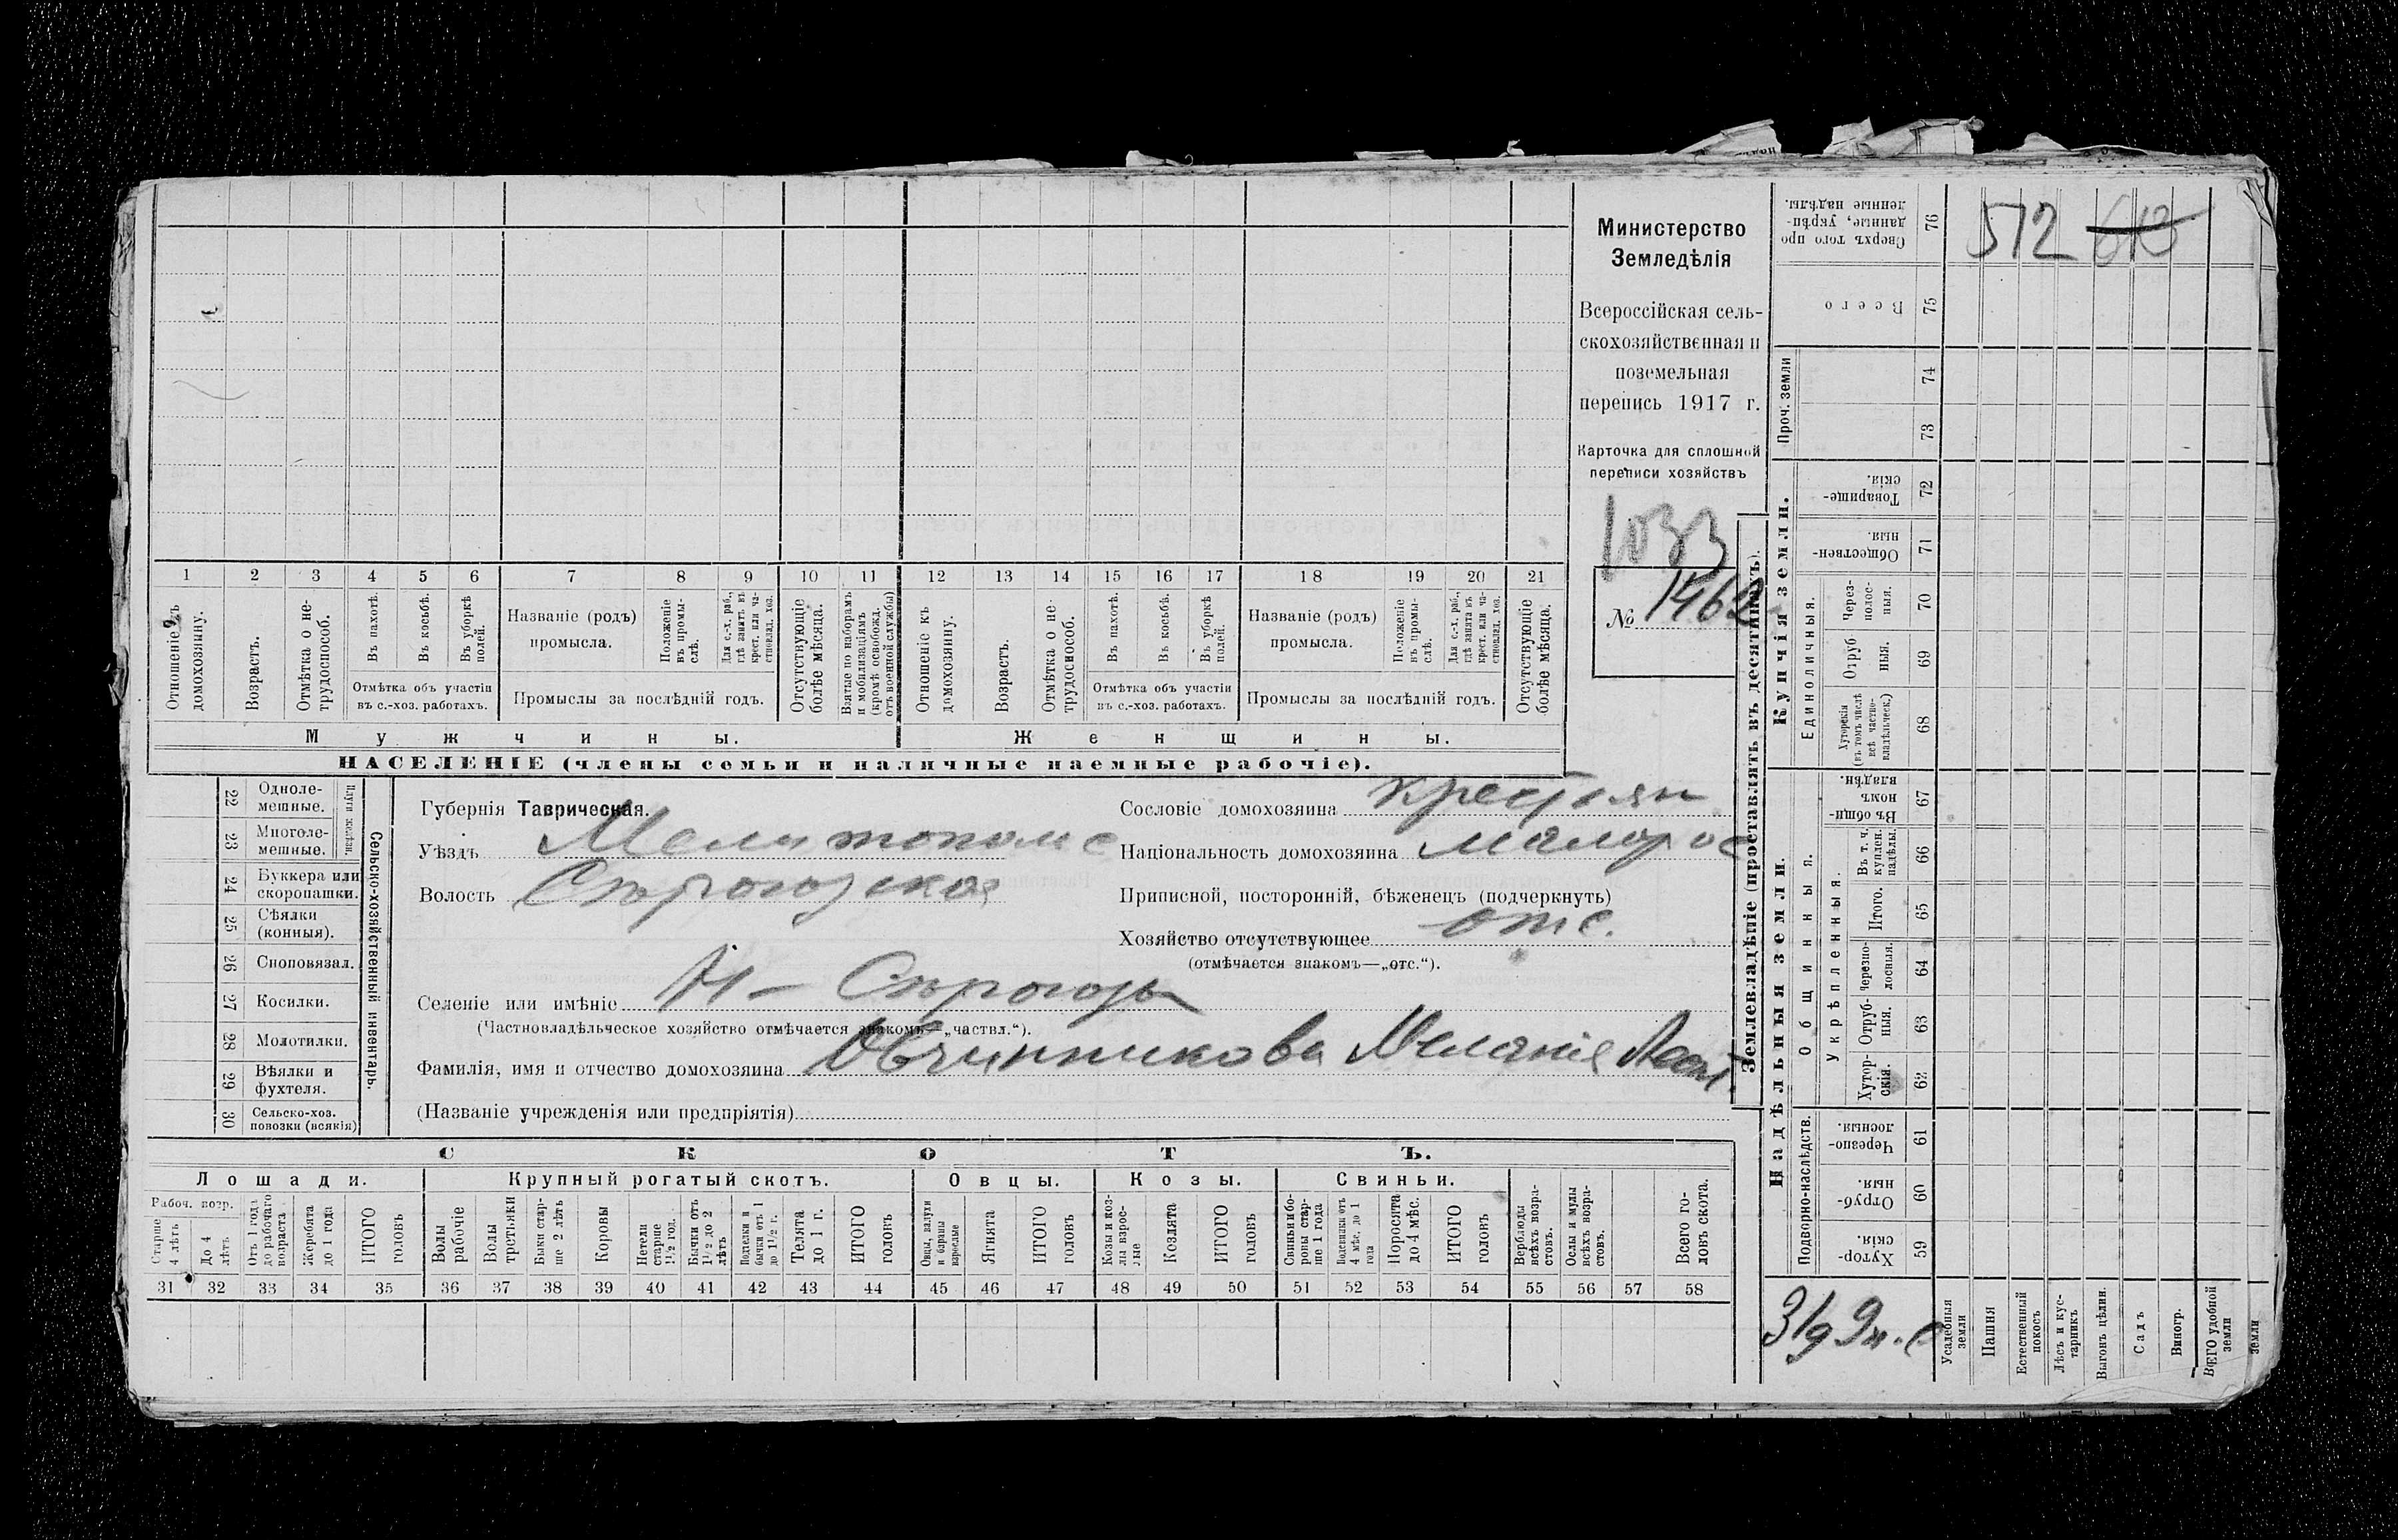 512 613
Министерство
Земледѣлія
Всероссійская сель-
скохозяйственная и
поземельная
перепись 1917 г.
Карточка для сплошной
переписи хозяйствъ
1033
№ 1462
1 2 3 4 5 6 7 8 9 10 11 12 13 14 15 16 17 18 19 20 21
Отношеніе къ домохозяину.
Возрастъ.
Отмѣтка о не-трудоспособ.
Въ пахотѣ.
Въ косьбѣ.
Въ уборкѣ полей.
Отмѣтка объ участіи
въ с.-хоз. работахъ.
Названіе (родъ)
промысла.
Положеніе въ промы-слѣ.
Для с.-х. раб., гдѣ занятъ въ крест. или ча-стновлад. хоз.
Промыслы за послѣдній годъ.
Отсутствующіе болѣе мѣсяца.
Взятые по наборамъ и мобилизаціямъ (кромѣ освобожд. отъ военной службы)
Отношеніе къ домохозяину.
Возрастъ.
Отмѣтка о не-трудоспособ.
Въ пахотѣ.
Въ косьбѣ.
Въ уборкѣ полей.
Отмѣтка объ участіи
въ с.-хоз. работахъ.
Названіе (родъ)
промысла.
Положеніе въ промы-слѣ.
Для с.-х. раб., гдѣ занята въ крест. или ча-стновлад. хоз.
Промыслы за послѣдній годъ.
Отсутствующіе болѣе мѣсяца.
Мужчины. Женщины.
НАСЕЛЕНІЕ (члены семьи и наличные наемные рабочіе).
Сельско-хозяйственный инвентарь.
Плуги желѣзн.
22 Одноле-мешные.
23 Многоле-мешные.
24 Буккера или скоропашки.
25 Сѣялки (конныя).
26 Сноповязал.
27 Косилки.
28 Молотилки.
29 Вѣялки и фухтеля.
30 Сельско-хоз. повозки (всякія)
Губернія Таврическая.
Уѣздъ Мелитопольс
Волость Сѣрогозская
Сословіе домохозяина крестьян
Національность домохозяина малорос
Приписной, посторонній, бѣженецъ (подчеркнуть)
Хозяйство отсутствующее отс.
(отмѣчается знакомъ—„отс.“).
Селеніе или имѣніе Н- Сѣрогозы
(Частновладѣльческое хозяйство отмѣчается знакомъ—„частвл.“).
Фамилія, имя и отчество домохозяина Овчинникова Меланія
(Названіе учрежденія или предпріятія)
СКОТЪ.
Лошади. Крупный рогатый скотъ. Овцы. Козы. Свиньи.
Рабоч. возр.
Старше 4 лѣтъ
До 4 лѣтъ
Отъ 1 года до рабочаго возраста
Жеребята до 1 года
ИТОГО головъ
Волы рабочіе
Волы третьяки
Быки стар-ше 2 лѣтъ
Коровы
Нетели старше 1½ год.
Бычки отъ 1½ до 2 лѣтъ
Подтелки и бычки отъ 1 до 1½ г.
Телята до 1 г.
ИТОГО головъ
Овцы, валухи и бараны взрослые
Ягнята
ИТОГО головъ
Козы и коз-лы взрос-лые
Козлята
ИТОГО головъ
Свиньи бо-ровы стар-ше 1 года
Подсвинки отъ 4 мѣс. до 1 года
Поросята до 4 мѣс.
ИТОГО головъ
Верблюды всѣхъ возра-стовъ.
Ослы и мулы всѣхъ возра-стовъ.
Всего го-ловъ скота.
31 32 33 34 35 36 37 38 39 40 41 42 43 44 45 46 47 48 49 50 51 52 53 54 55 56 57 58
Землевладѣніе (проставлять въ десятинахъ).
Сверхъ того про-данные, укрѣп-ленные надѣлы. 76
Всего 75
Проч. земли
74
73
Купчія земли.
Товарище-скія. 72
Обществен-ныя. 71
Единоличныя.
Через-полос-ныя. 70
Отруб-ныя. 69
Хуторскія (въ томъ числѣ всѣ частно-владѣльческ.) 68
Надѣльныя земли.
Общинныя.
Въ общин-номъ владѣн. 67
Укрѣпленныя.
Въ т. ч. куплен. надѣлы. 66
Итого. 65
Черезпо-лосныя. 64
Отруб-ныя. 63
Хутор-скія. 62
Подворно-наслѣдств.
Черезпо-лосныя. 61
Отруб-ныя. 60
Хутор-скія. 59
Усадебныя земли
Пашня
Естественный покосъ
Лѣсъ и кус-тарникъ
Выгонъ цѣлин.
Садъ
Виногр.
ВСЕГО удобной земли
земли